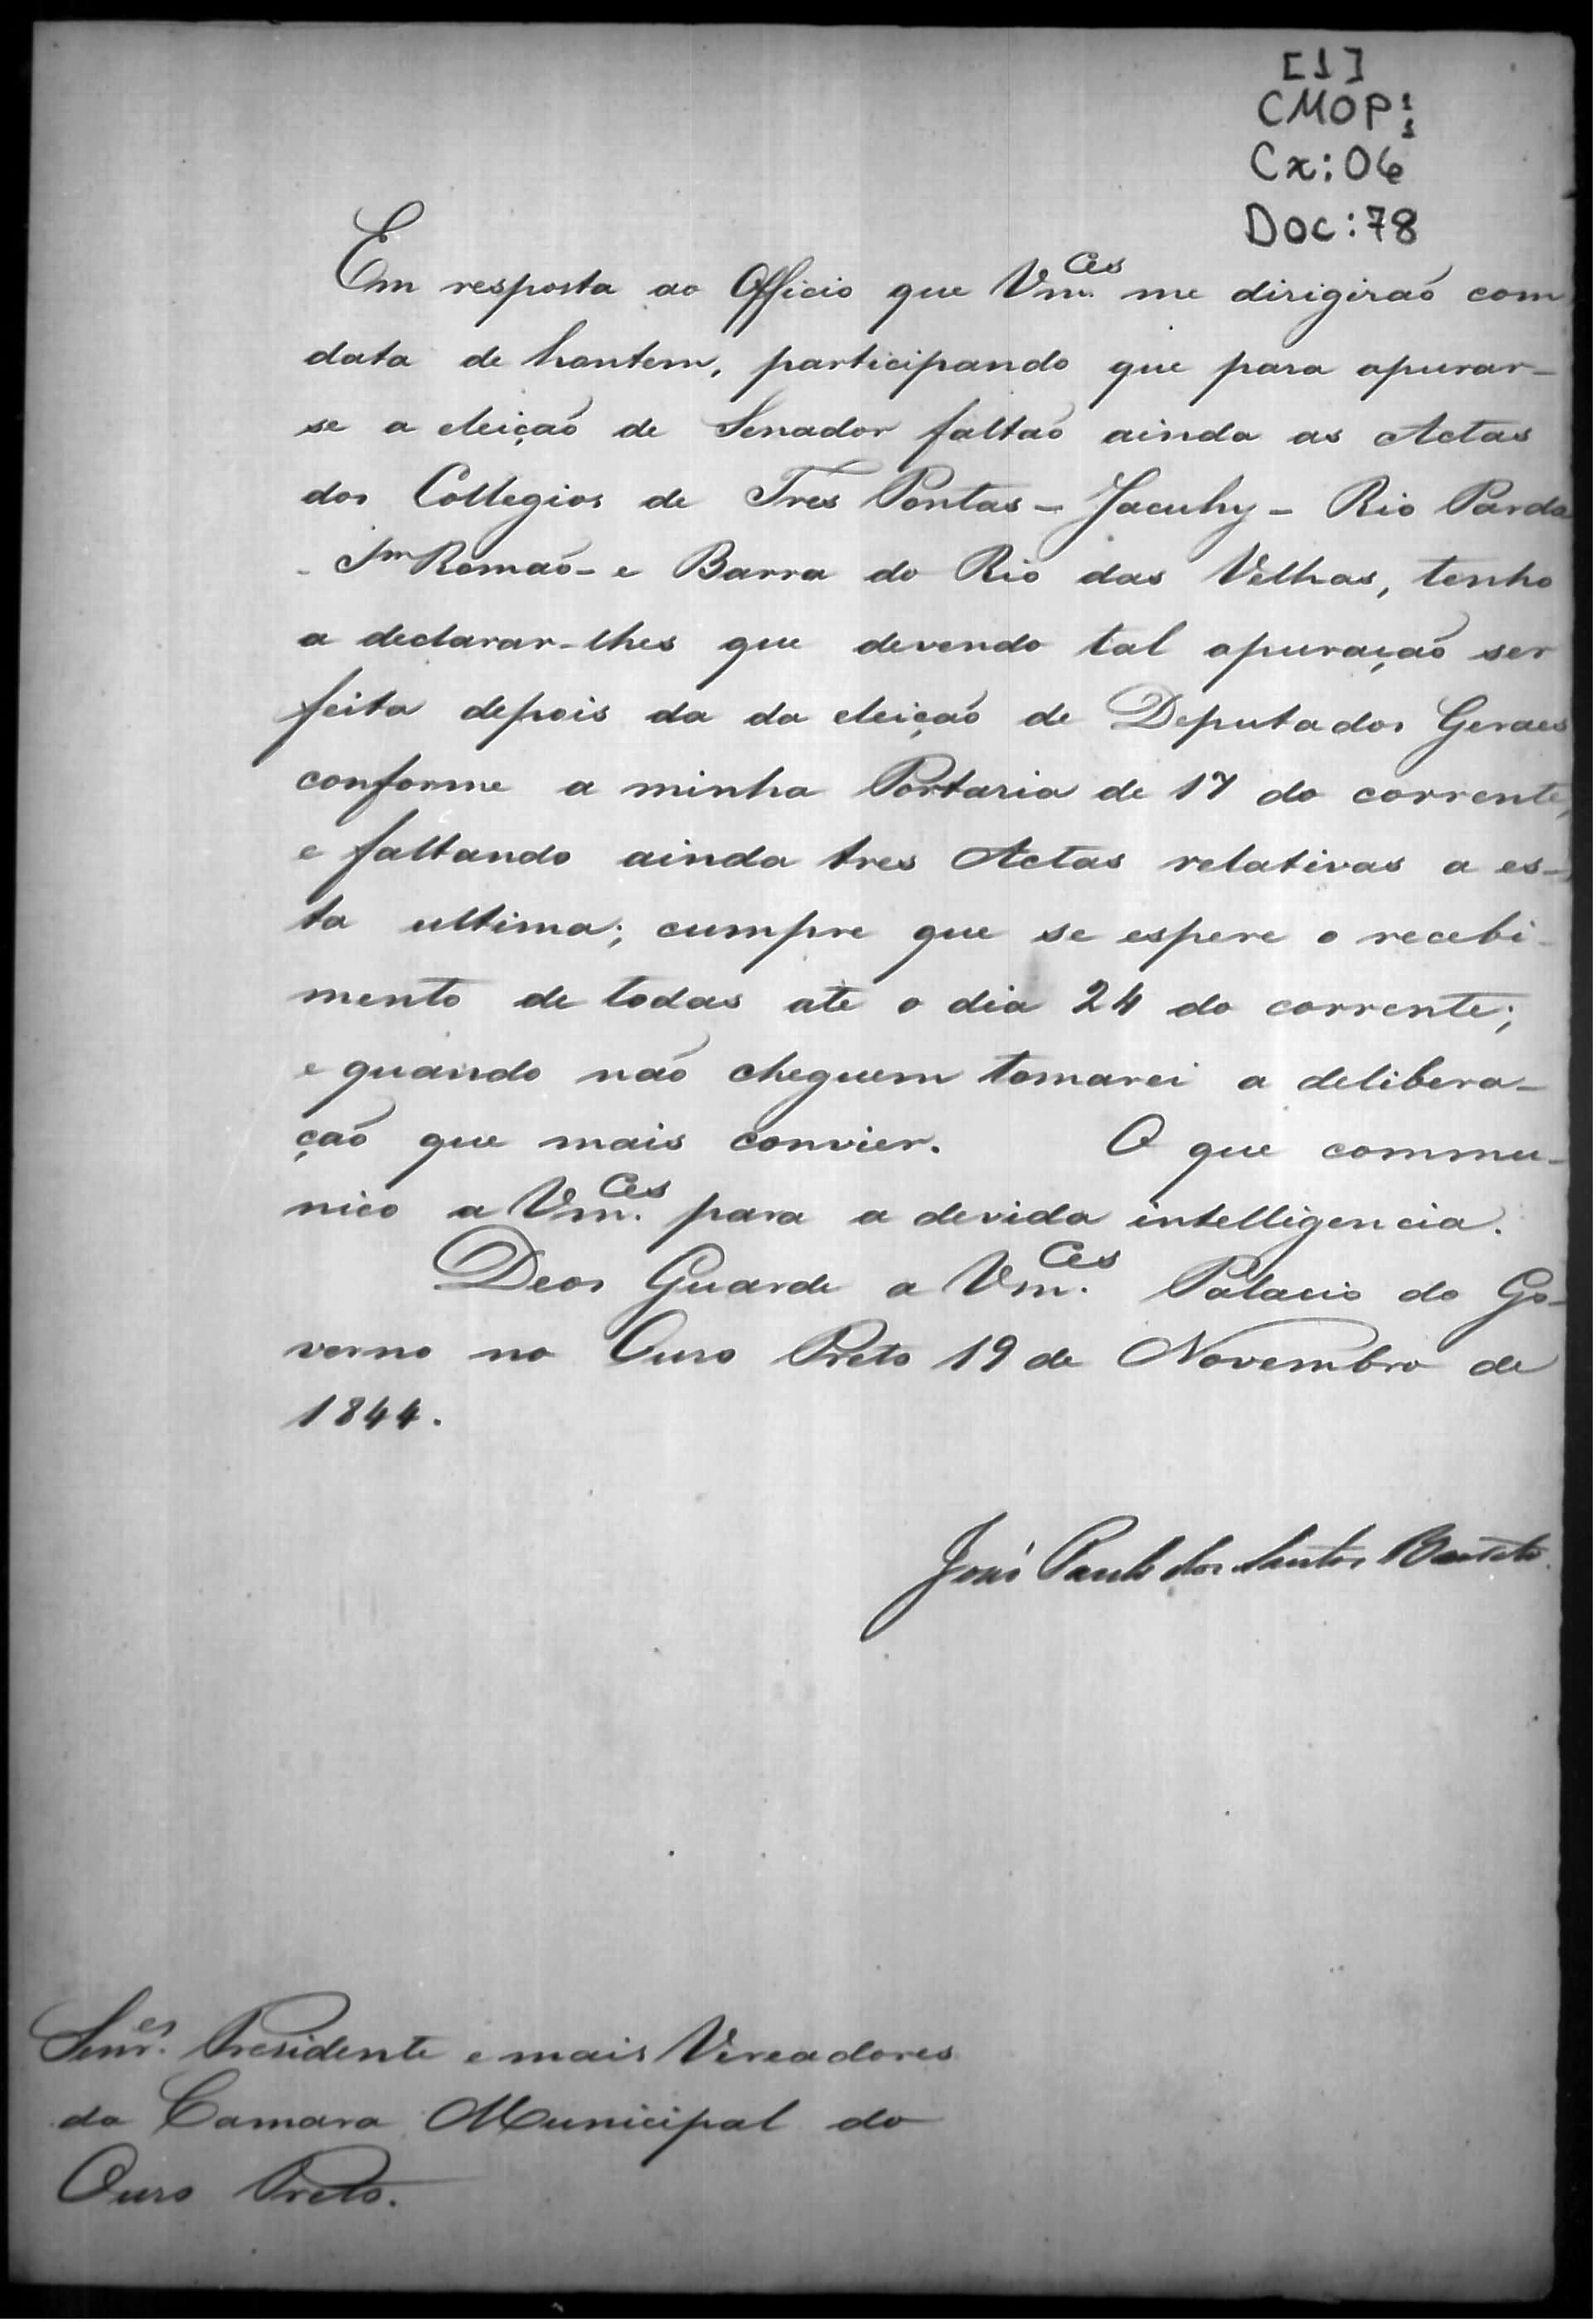 [1]
CMOP:
Cx:06
Doc:78
Em resposta ao Officio que Vm.ces me dirigiraõ com
data de hontem, participando que para apurar-
se a eleiçaõ de Senador faltaõ ainda as Actas
dos Collegios de Tres Pontas - Jacuhy - Rio Pardo
- Sm Romaõ - e Barra do Rio das Velhas, tenho
a declarar-lhes que devendo tal apuraçaõ ser
feita depois da da eleiçaõ de Deputados Geraes
conforme a minha Portaria de 17 do corrente,
e faltando ainda tres Actas relativas a es-
ta ultima; cumpre que se espere o recebi-
mento de todas até o dia 24 do corrente;
e quando naõ cheguem tomarei a delibera-
çaõ que mais convier. O que commu-
nico a Vm.ces para a devida intelligencia.
Deos Guarde a Vm.ces Palacio do Go-
verno no Ouro Preto 19 de Novembro de
1844.
José Paulo dos Santos Barreto
Senr.es Presidente e mais Vereadores
da Camara Municipal do
Ouro Preto.